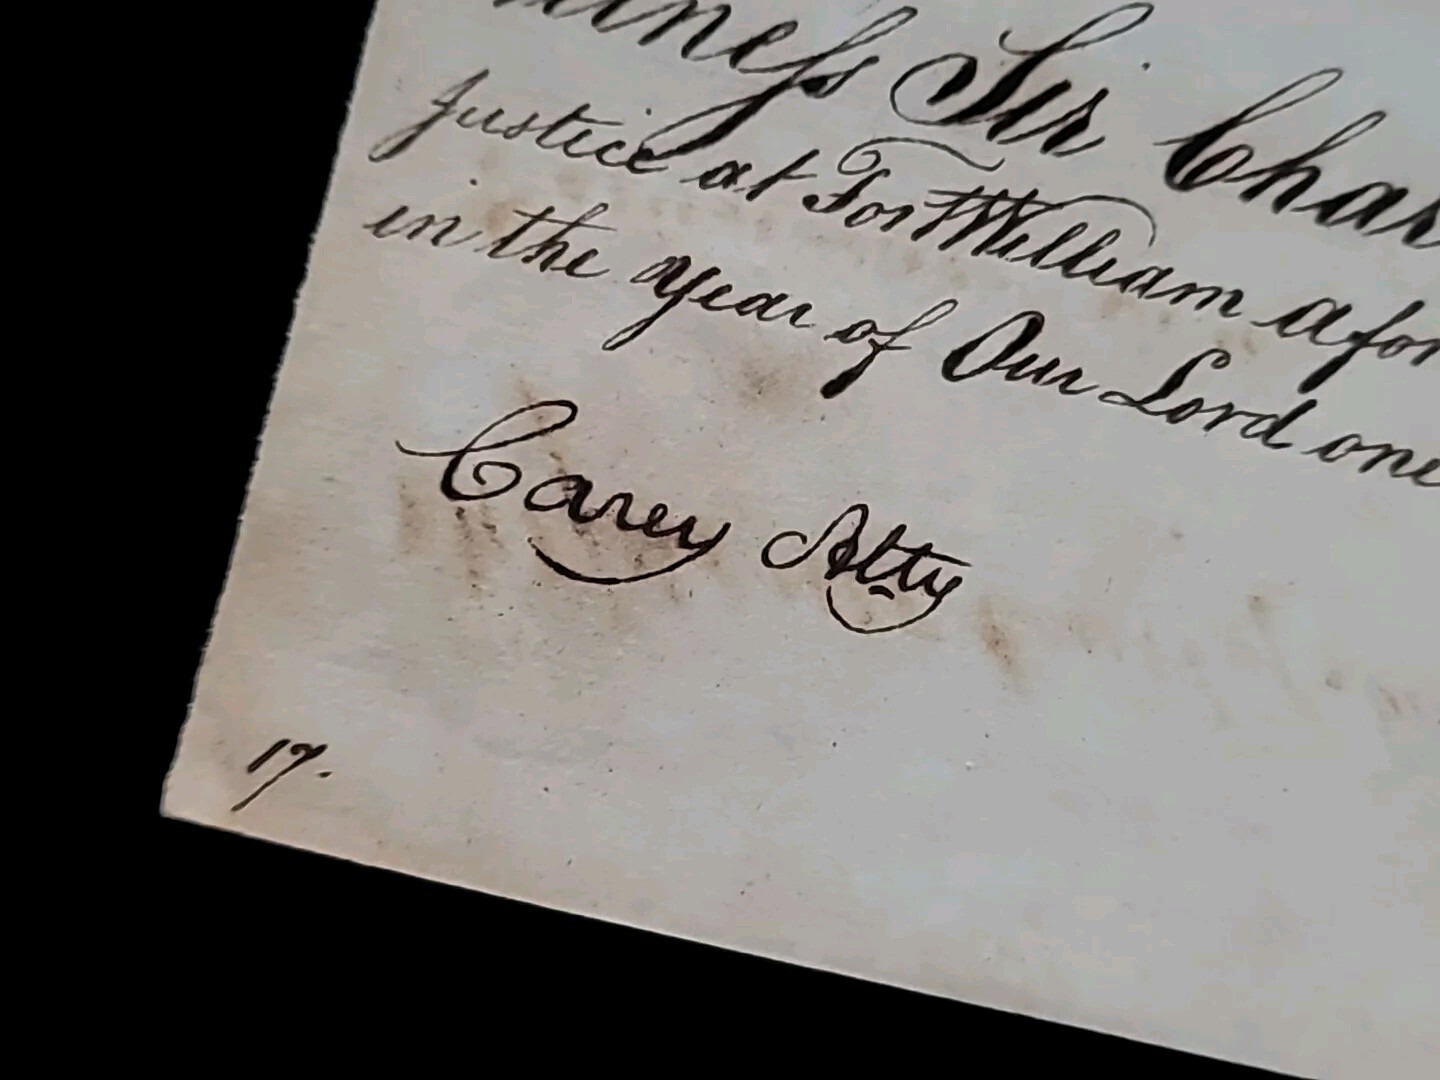 Sir Char
Justice at Fort William afor
in the year of Our Lord one
Carey Atty
17.